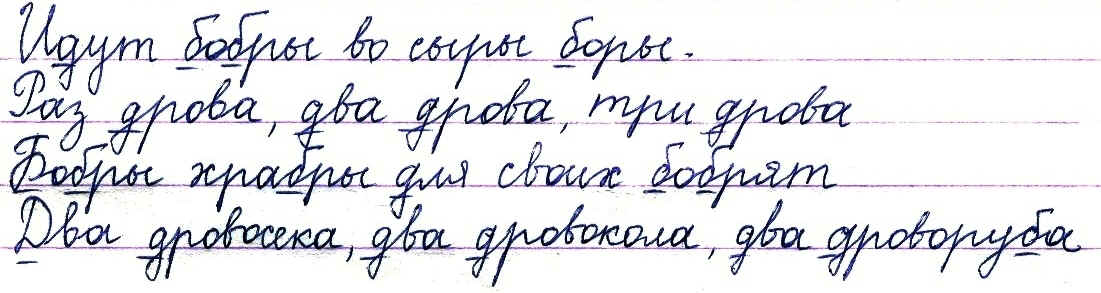 Идут бобры во сыры боры.
Раз дрова, два дрова, три дрова
Бобры храбры для своих бобрят
Два дровосека, два дровокола, два дроворуба